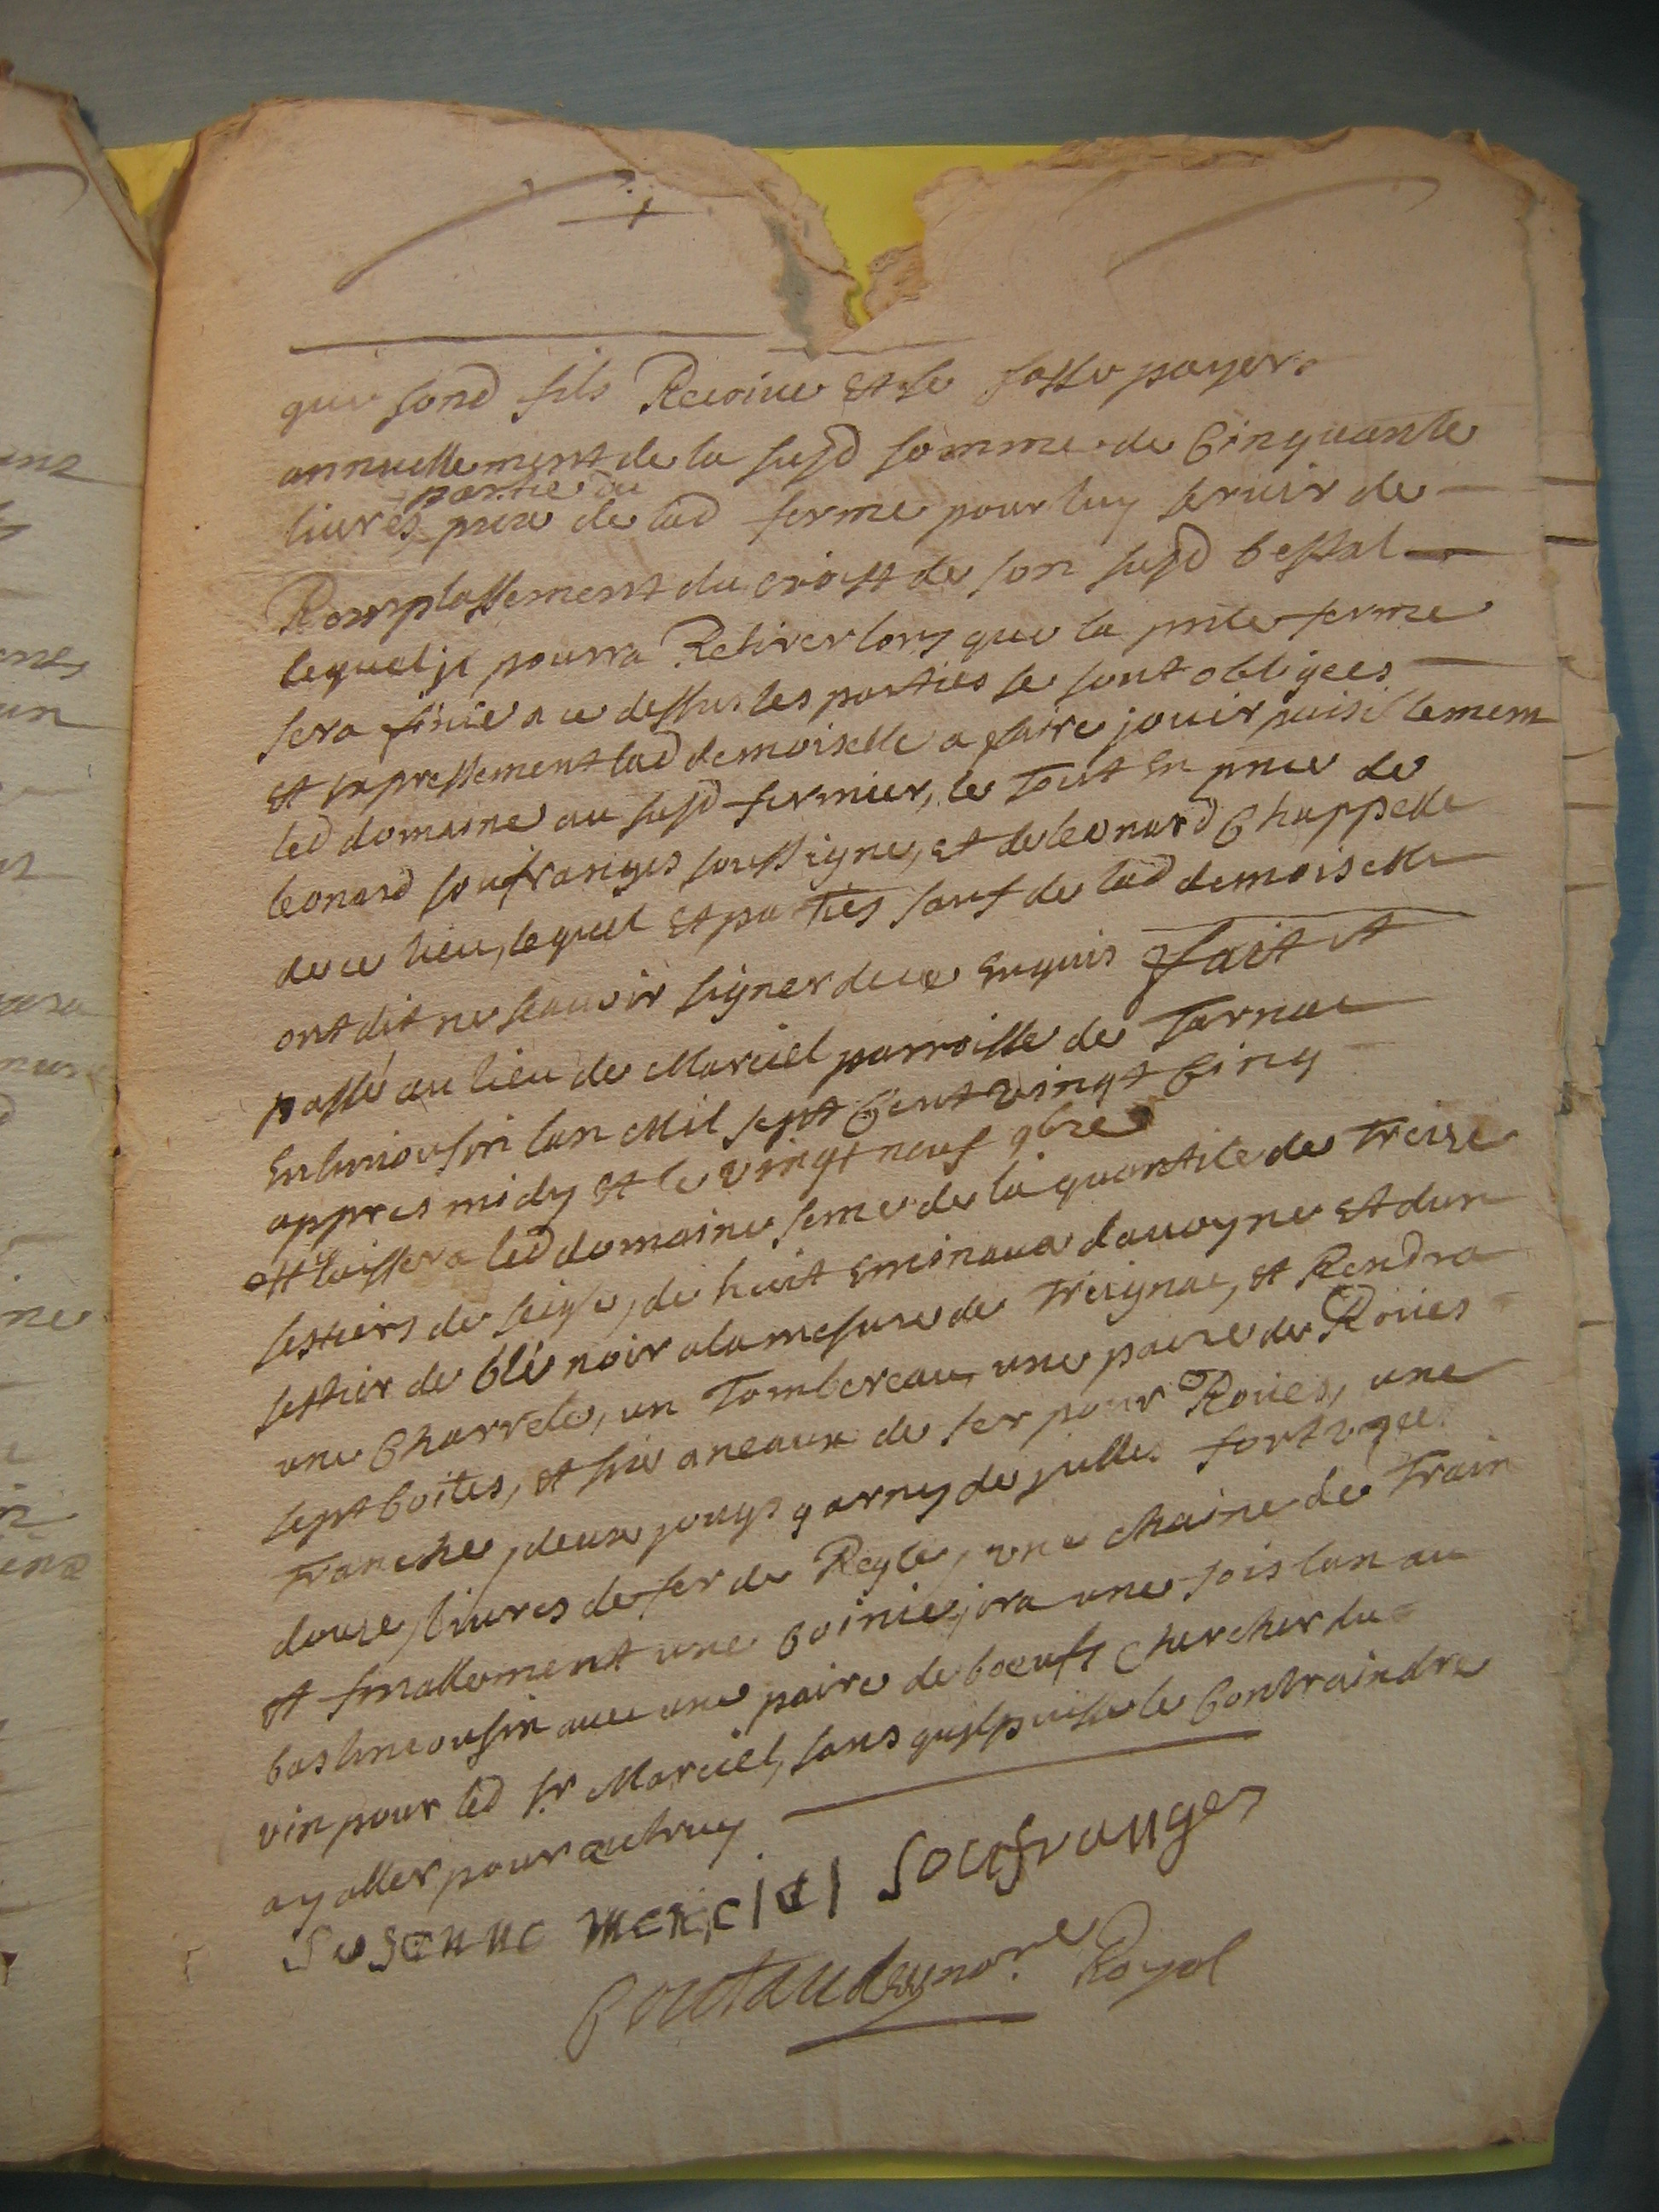 que sond fils Recoive et se fasse payer
annuellement de la susd somme de Cinquante
partie du
livres prix de lad ferme pour luy servir de
Remplassement du croist de son susd bestal
lequel jl pourra Retirer lors que la pnte ferme
sera finie a ce dessus les parties se sont obligees
et expressement lad demoiselle a faire jouir paisiblement
led domaine au susd fermier, le Tout En pnce de
leonard soufranges soussigne, et de leonard Chappelle
de ce lieu, lequel et parties sauf de lad demoiselle
ont dit ne scavoir signer de ce Enquis ffait et
passé au lieu de Marciel parroisse de Tarnac
En limousin lan Mil sept Cent vingt Cinq
appres midy et le vingt neuf 9bre
et laissera led domaine seme de la quantite de Treize
sestiers de seigle, de huit Eminaux davoyne et dun
sestier de blé noir a la mesure de Treignac, et Rendra
une Charrete, un Tombereau, une paire de Roües
sept boites, et six aneaux de fer pour Roües, une
Tranche, deux jougs garny de julles fort uzee
douze livres de fer de Regle, une chaine de Train
et finallement une jra une fois lan au
bas limousin avec une paire de boeufs chercher du
vin pour led sr Marciel, sans quil puisse le Contraindre
a y aller pour autruy
Susenne merciel Soufranges
nore Royal